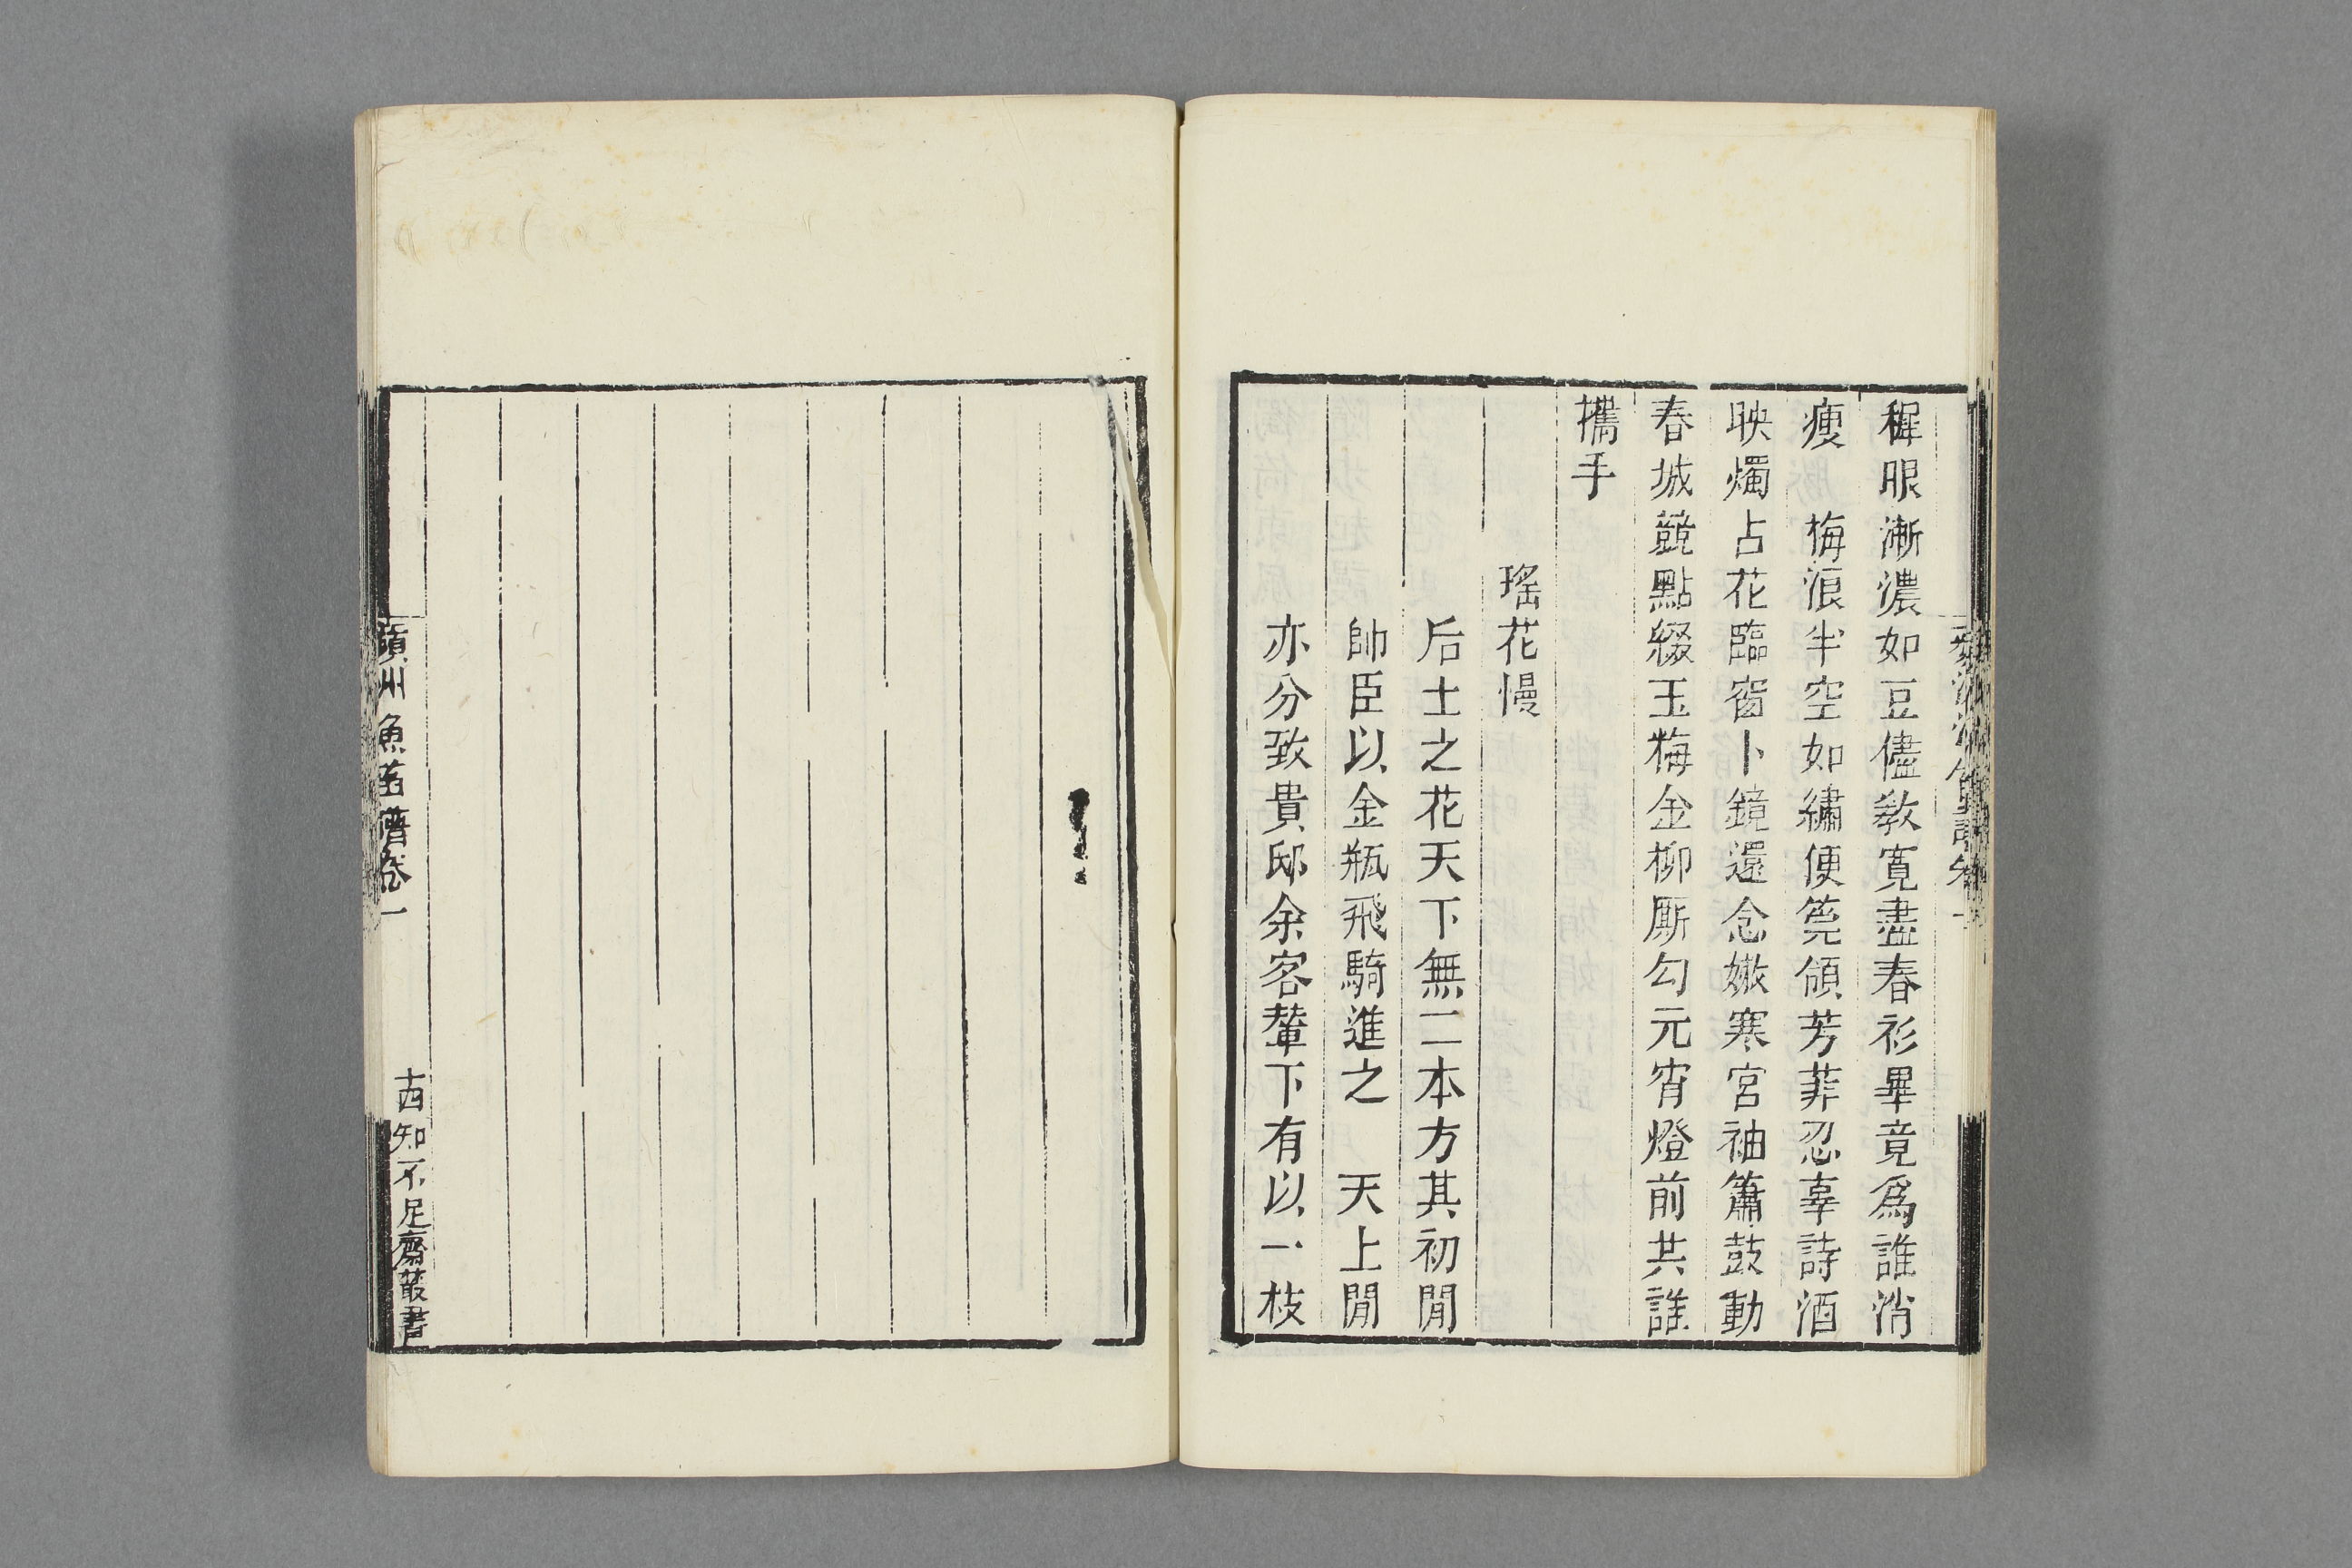 穉眼漸濃如豆儘敎寬盡春衫畢竟爲誰消
瘦　梅浪半空如繡便筦領芳菲忍辜詩酒
映燭占花臨窗卜鏡還念嫩寒宮袖簫鼓動
春城競點綴玉梅金柳厮勾元宵燈前共誰
攜手
瑤花慢
后土之花天下無二本方其初開
帥臣以金瓶飛騎進之　天上間
亦分致貴邸余客輦下有以一枝
蘋洲漁笛譜卷一
十四
知不足齋叢書